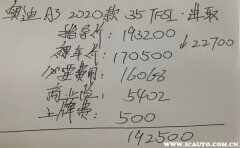 奥迪A3 2020款 35 TFSI·进取
指导价: 193200
裸车价: 170500
↓22700
购置费用: 16068
商业险: 5402
上牌费: 500
192500
WWW.ICAUTO.COM.CN